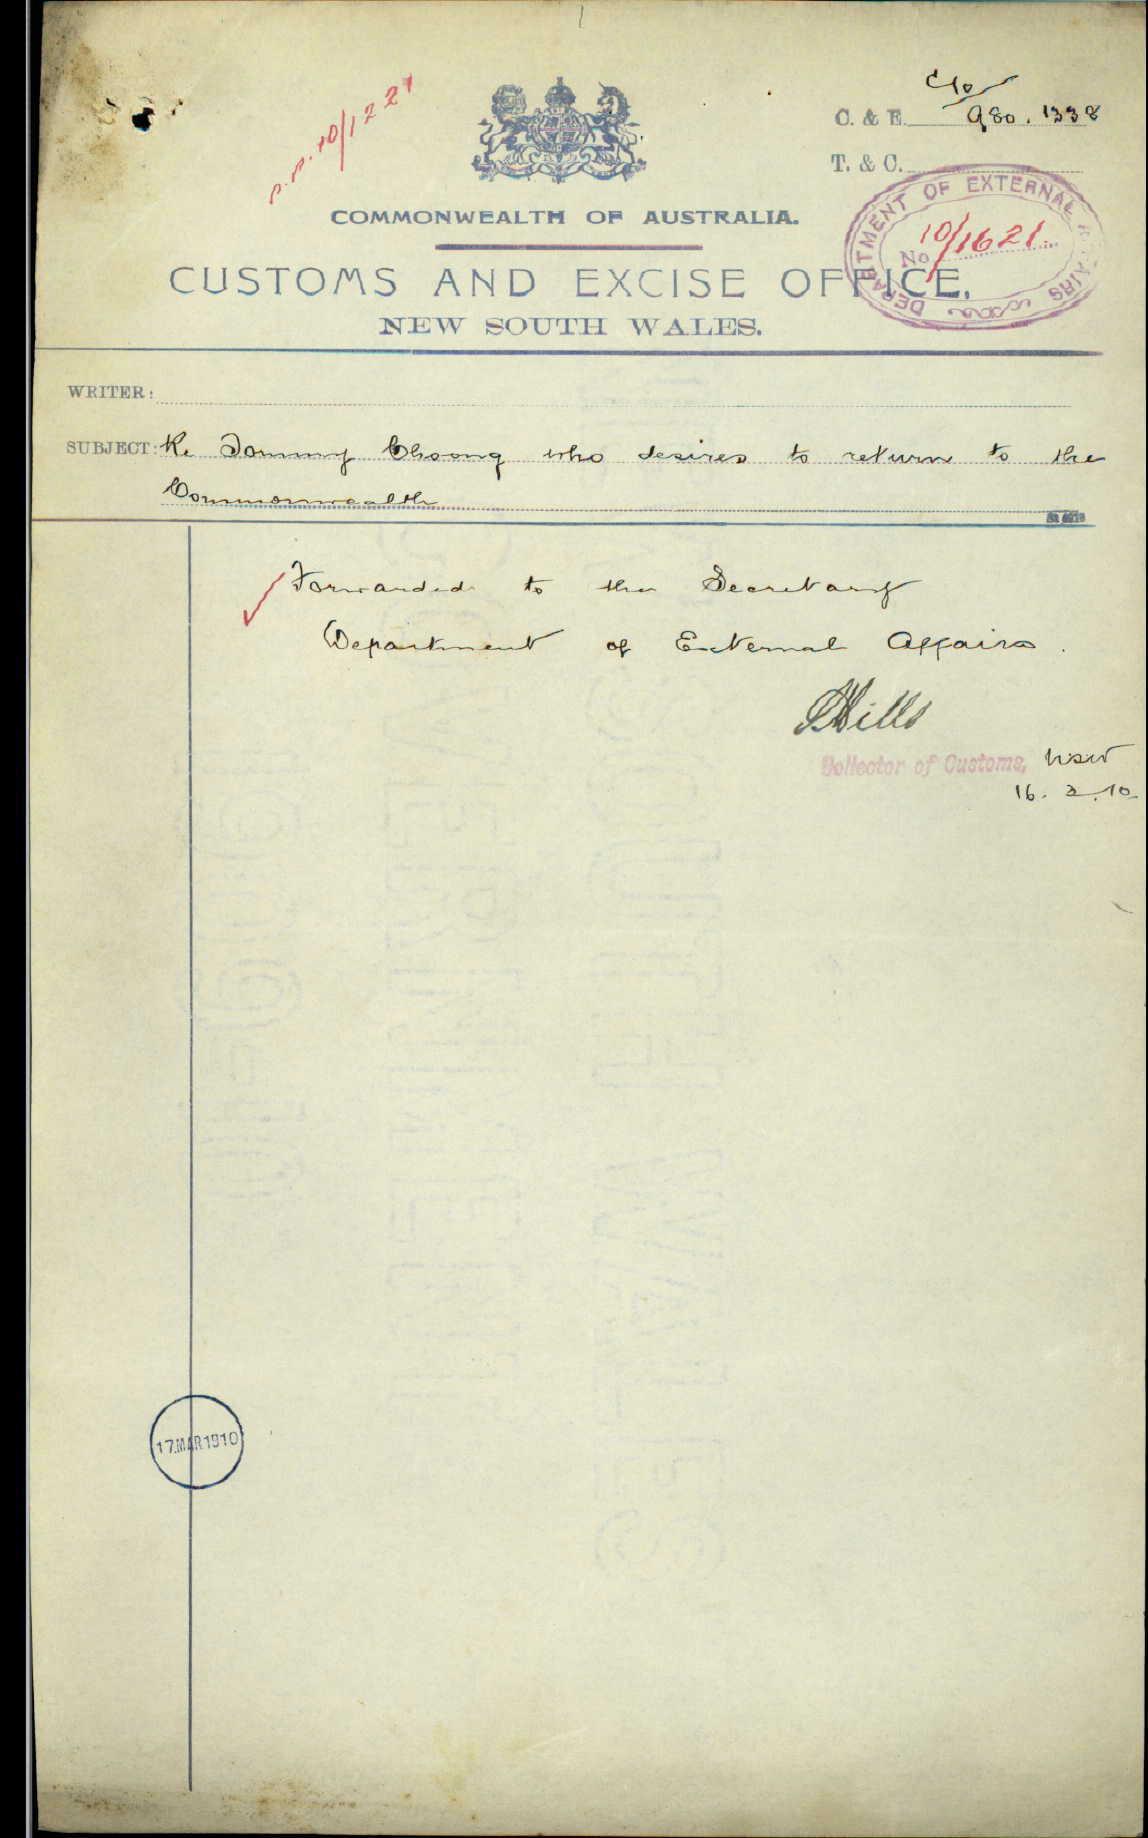 p.p. 10/1221
C10/
C. & E. 980. 1338
T. & C.
COMMONWEALTH OF AUSTRALIA.
DEPARTMENT OF EXTERNAL AFFAIRS
No 10/1621.
CUSTOMS AND EXCISE OFFICE,
NEW SOUTH WALES.
WRITER:
SUBJECT: Re Tommy Choong who desires to return to the
Commonwealth
Forwarded to the Secretary
Department of External Affairs.
Mills
Collector of Customs, NSW
16. 3. 10
17 MAR 1910